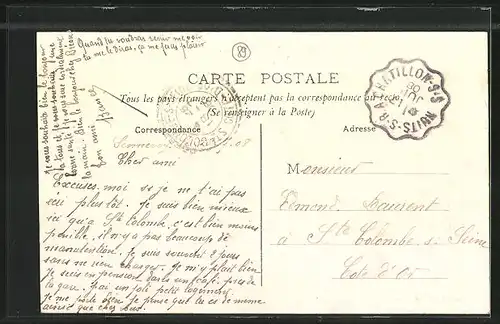 Quand tu voudras venir me voir
tu me le diras, ça me fera plaisir
89
CARTE POSTALE
Tous les pays étrangers n'acceptent pas la correspondance au recto
(Se renseigner à la Poste)
Correspondance
Adresse
CHATILLON-S-S
NUITS-S-R
08
Cher ami
Excuses moi si je ne t'ai pas
écris plus tôt. Je suis bien mieux
ici qu'a Ste Colombe, c'est bien moins
pénible, il n'y a pas beaucoup de
manutention. Je suis souvent 2 jours
sans ne rien charger. Je m'y plait bien
je suis en pension dans un café, près de
la gare. J'ai un joli petit logement.
Je me porte bien je pense que tu es de meme
ainsi que chez
Je vous souhaite bien le bonjour
a tous et
main. Bien le bonjour chez
ton ami
Monsieur
Edmond Laurent
à Ste Colombe s. Seine
Côte d'Or